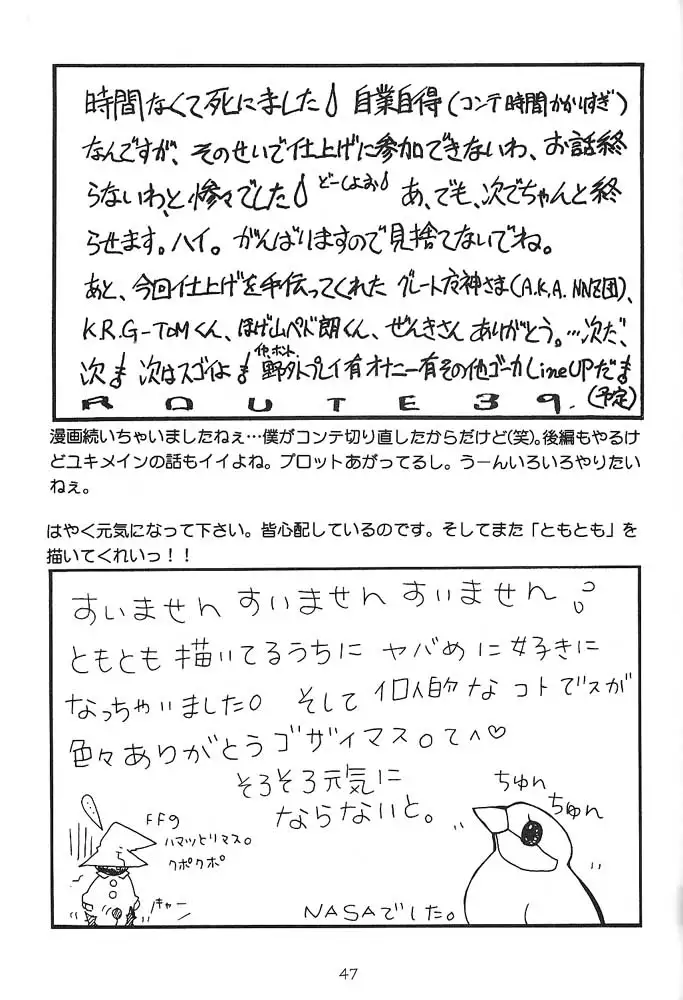 時間なくて死にました 自業自得(コンテ時間かかりすぎ)
なんですが、そのせいで仕上げに参加できないわ、お話終
らないわ、と惨々でした どーしよお あ、でも、次でちゃんと終
らせます。ハイ。がんばりますので見捨てないでね。
あと、今回仕上げを手伝ってくれた グレート
さま(A.K.A. NNZ団)、
K.R.G-TOMくん、ほげ山ペド朗くん、ぜんきさん ありがとう。…次だ、
次はスゴイよ 野外プレイ有オナニー有その他ゴーカLineUPだ
(予定)
ROUTE39.
漫画続いちゃいましたねぇ…僕がコンテ切り直したからだけど(笑)。後編もやるけ
どユキメインの話もイイよね。プロットあがってるし。うーんいろいろやりたい
ねぇ。
はやく元気になって下さい。皆心配しているのです。そしてまた「ともとも」を
描いてくれいっ!!
すいません すいません すいません
ともとも描いてるうちに ヤバめに好きに
なっちゃいました。 そして 個人的な コトでスが
色々ありがとうゴザイマス。て^♡
そろそろ元気に
ならないと。
FFの
ハマッとりマス。
クポクポ
キャー
ちゅん
ちゅん
NASAでした。
47